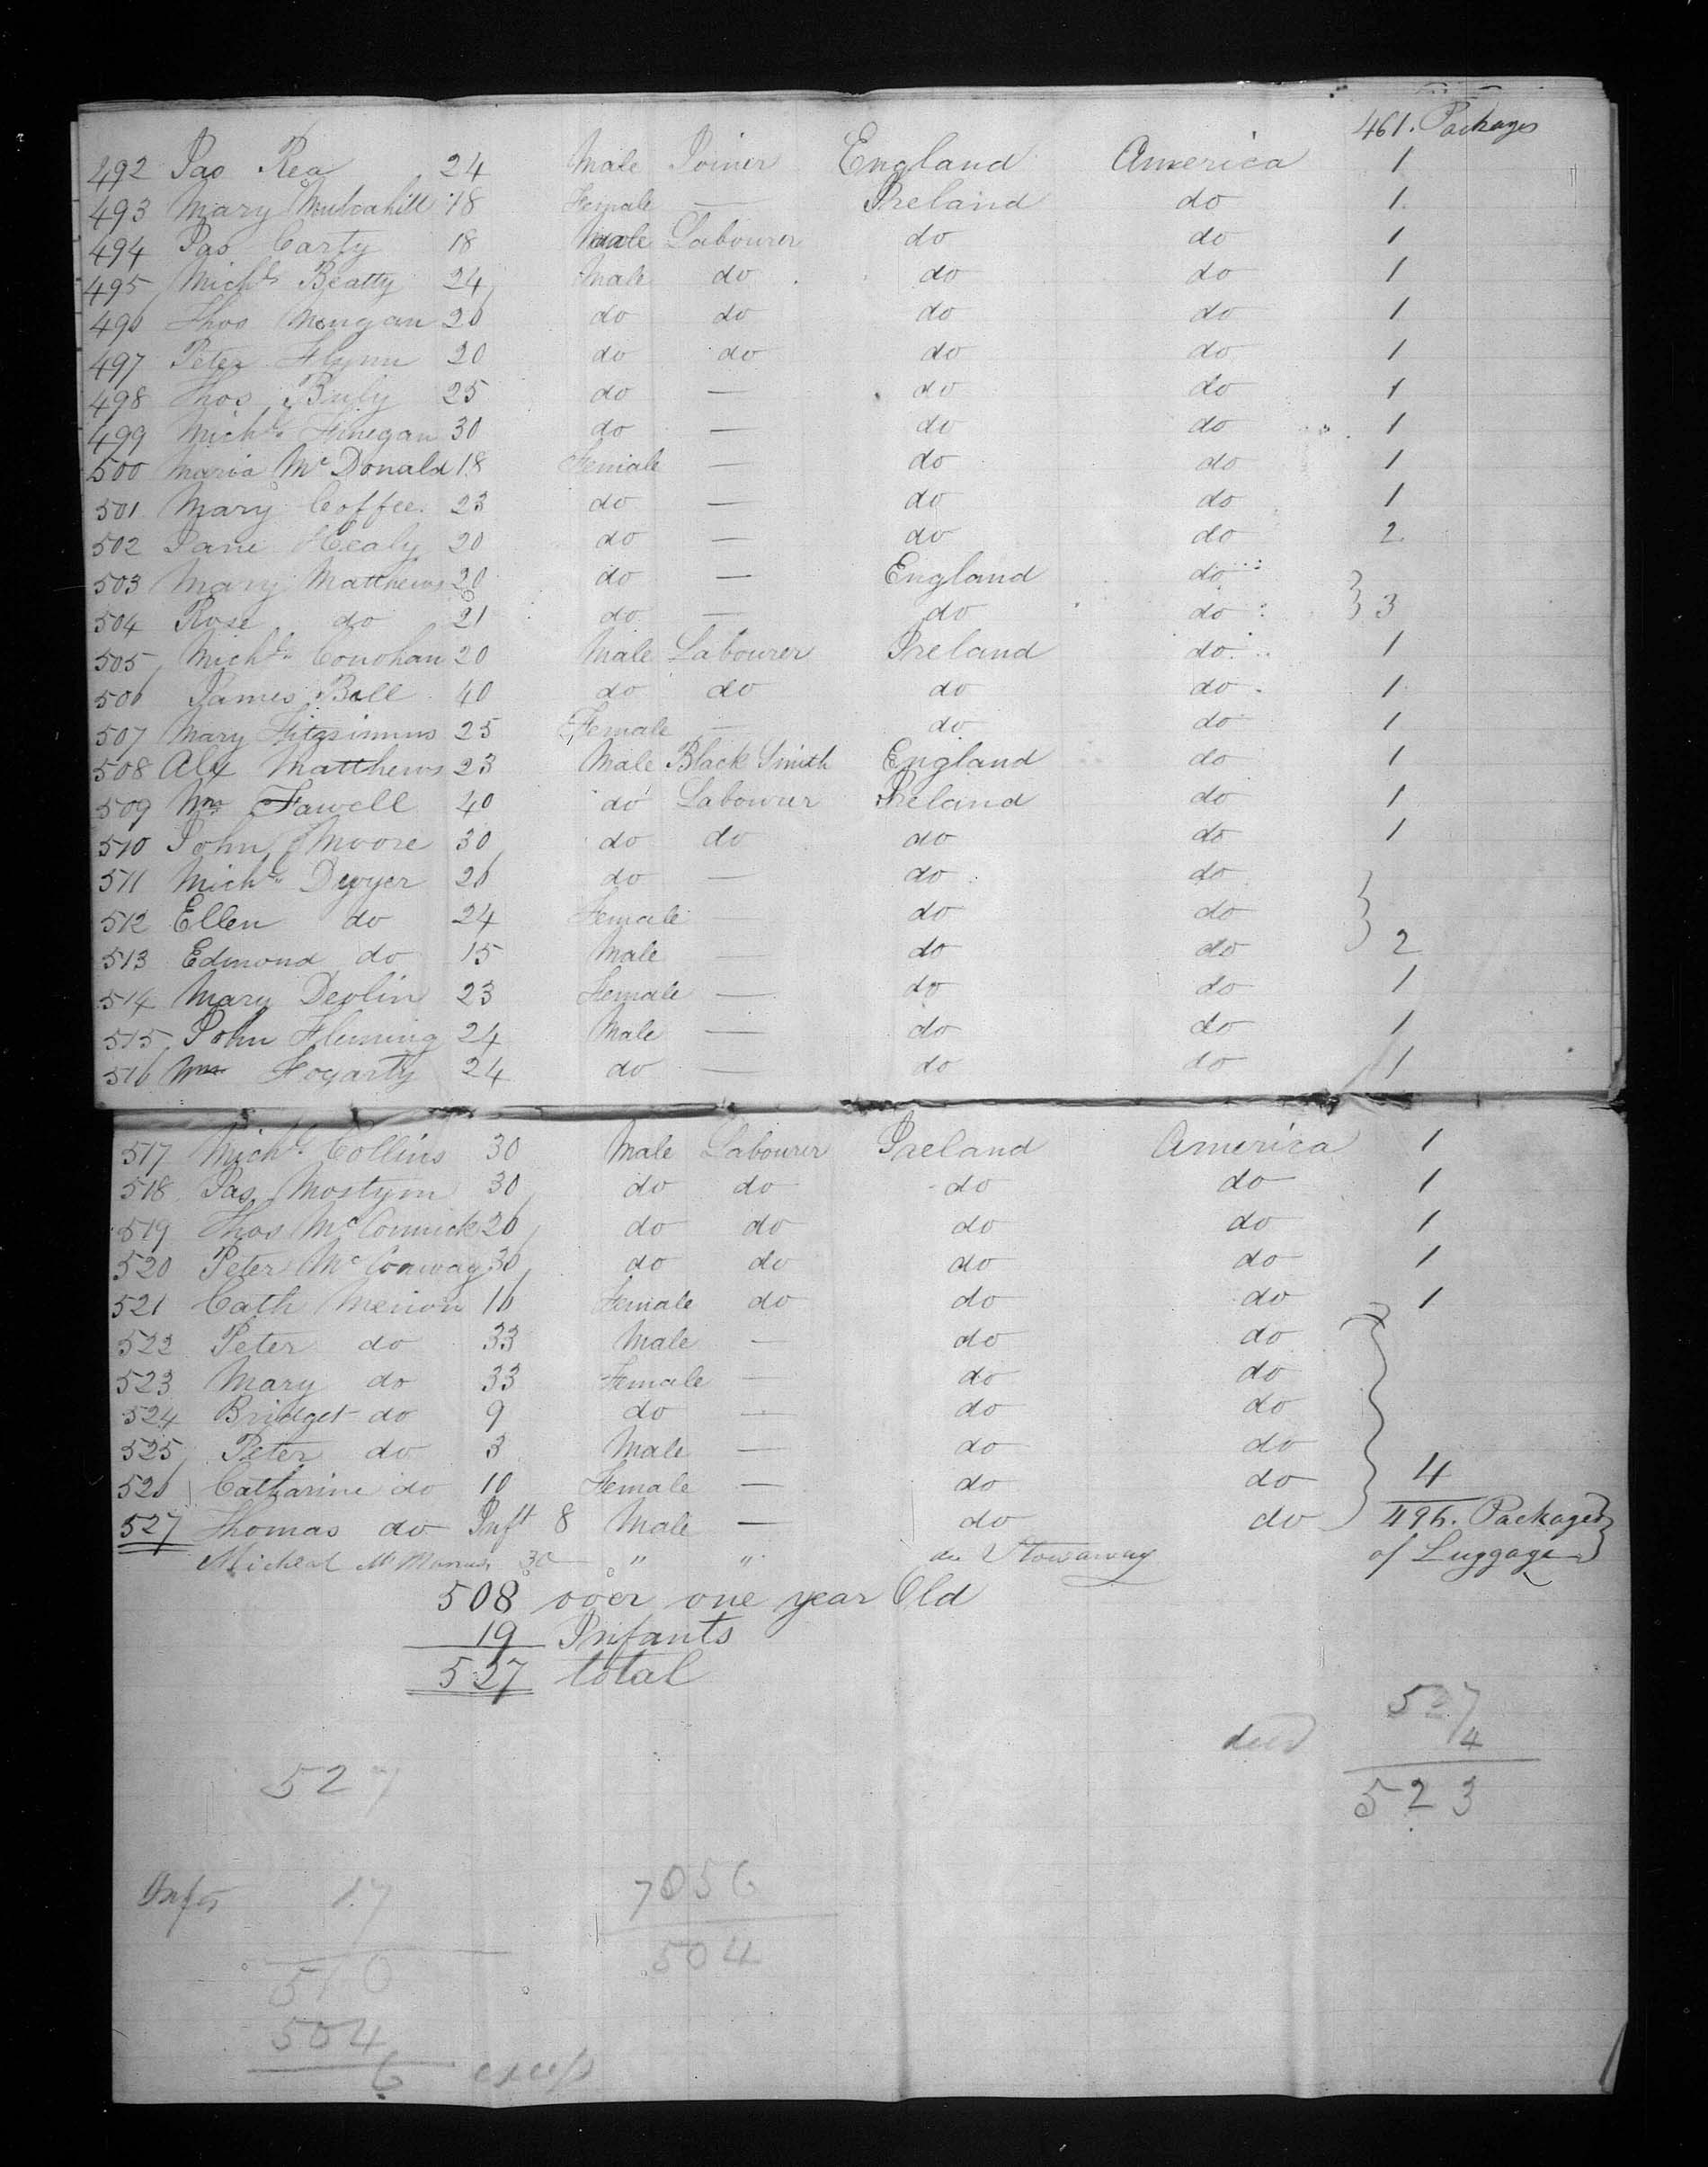 461. Packages
492 Jas Rea 24 Male Joiner England America 1
493 Mary Mulvahill 18 Female — Ireland do 1
494 Jas Carty 18 Male Labourer do do 1
495 Michl Beatty 24 Male do do do 1
496 Thos Mongan 26 do do do do 1
497 Peter Flynn 20 do do do do 1
498 Thos 25 do — do do 1
499 Michl Finegan 30 do — do do 1
500 Maria McDonald 18 Female — do do 1
501 Mary Coffee 23 do — do do 1
502 Jane Healy 20 do — do do 2
503 Mary Matthews 20 do — England do
504 Rose do 21 do — do do } 3
505 Michl Conohan 20 Male Labourer Ireland do 1
506 James Bell 40 do do do do 1
507 Mary Fitzsimms 25 Female — do do 1
508 Alex Matthews 23 Male Black Smith England do 1
509 Wm Fawcll 40 do Labourer Ireland do 1
510 John Moore 30 do do do do 1
511 Michl Dwyer 26 do — do do
512 Ellen do 24 Female — do do
513 Edmond do 15 Male — do do } 2
514 Mary Devlin 23 Female — do do 1
515 John Fleming 24 Male — do do 1
516 Wm Fogarty 24 do — do do 1
517 Michl Collins 30 Male Labourer Ireland America 1
518 Jas Mostyn 30 do do do do 1
519 Thos McCormick 26 do do do do 1
520 Peter McConway 30 do do do do 1
521 Cath Merion 16 Female do do do 1
522 Peter do 33 Male — do do
523 Mary do 33 Female — do do
524 Bridget do 9 do — do do
525 Peter do 3 Male — do do
526 Catharine do 10 Female — do do } 4
527 Thomas do Inft 8 Male — do do 496. Packages
Micheal McManus 30 " " Stowaway of Luggage
508 over one year Old
19 Infants
527 total
527
died 4
527
523
Infts 17
7056
510
504
504
6